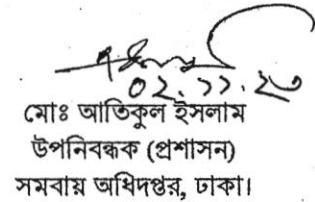 ০২.১১.২৩
মোঃ আতিকুল ইসলাম
উপনিবন্ধক (প্রশাসন)
সমবায় অধিদপ্তর, ঢাকা।